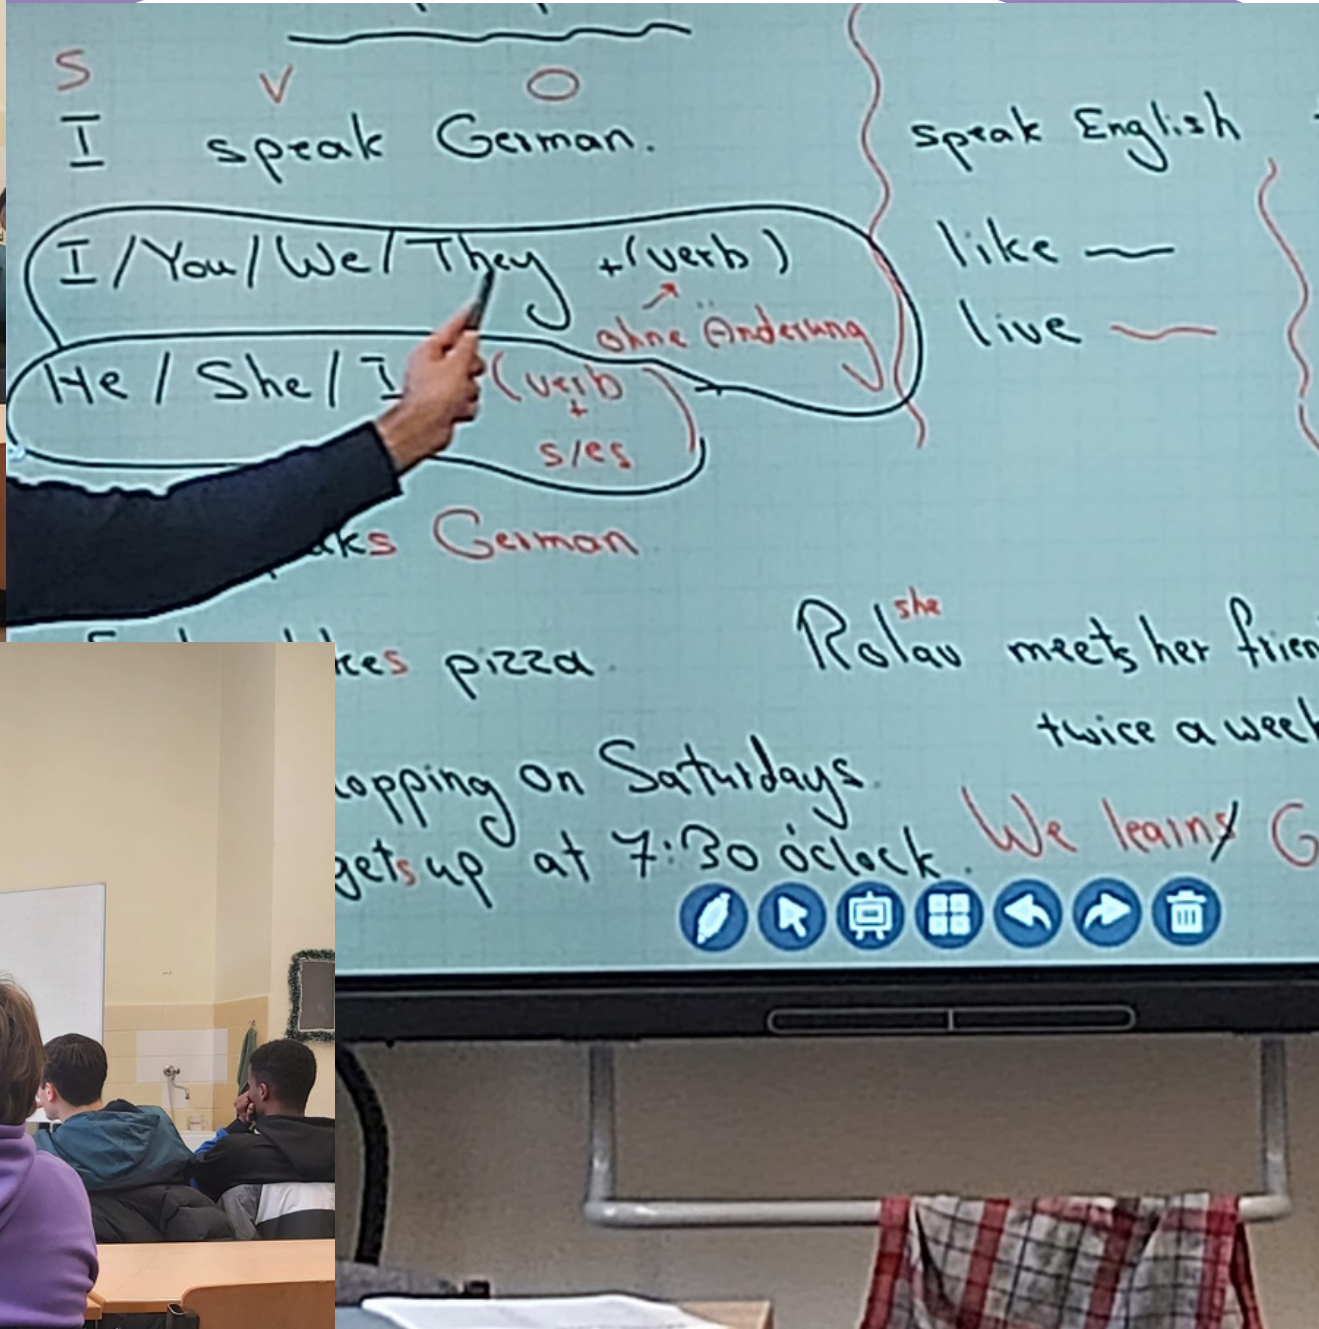 S V O
I speak German.
I / You / We / They + (verb)
ohne Änderung
He / She / I
(verb
+
s/es)
aks German
kes pizza.
opping on Saturdays.
gets up at 7:30 o'clock.
speak English
like
live
she
Rolav meets her frien
twice a week
We learns G